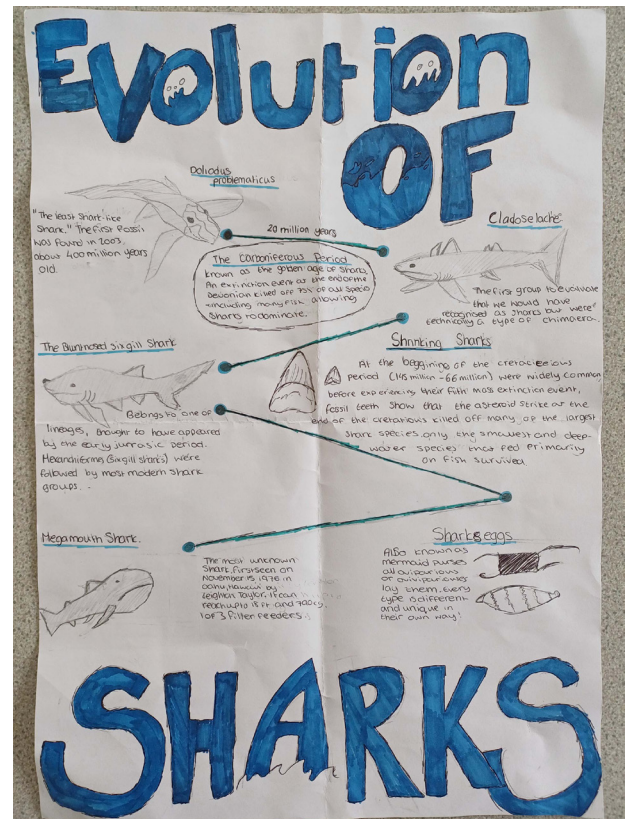 Evolution
OF
Doliodus
problematicus
"The least shark-like
shark." The first fossil
was found in 2003,
about 400 million years
old.
20 million years
The Carboniferous Period
known as the golden age of sharks.
An extinction event at the end of the
Devonian killed off 75% of all species
including many fish allowing
sharks to dominate.
Cladoselache
The first group to
that we would have
recognised as sharks but were
technically a type of chimaera.
The Bluntnosed Sixgill Shark
Belongs to one of
lineages, thought to have appeared
by the early jurrasic period.
(sixgill sharks) were
followed by most modern shark
groups.
Shrinking Sharks
At the beggining of the
period (145 million - 66 million) were widely common
before experiencing their fith mass extinction event,
fossil teeth show that the asteroid strike at the
end of the killed off many of the largest
shark species, only the smallest and deep-
water species that fed primarily
on fish survived
Megamouth Shark.
The most unknown
shark, first seen on
November 15, 1976 in
by
Leighton Taylor. It can
reach up to 18 ft and
1 of 3 filter feeders.
Sharks eggs
Also known as
mermaid purses
all oviparious
or
lay them. Every
type is different
and unique in
their own way!
SHARKS